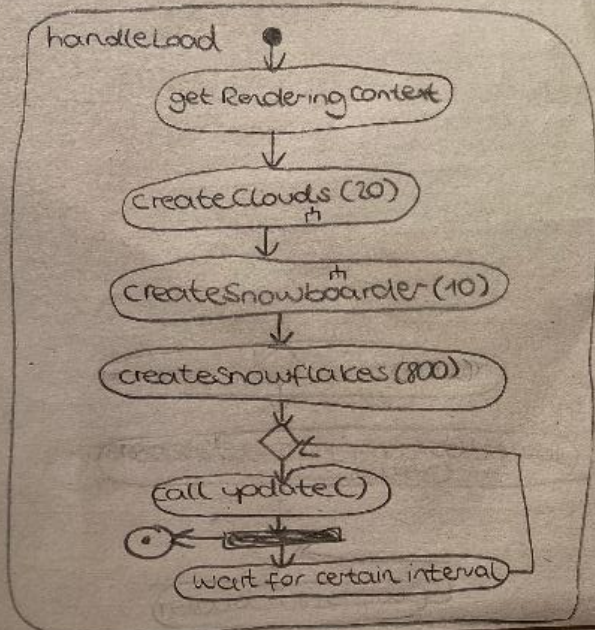 handleLoad
get Rendering Context
createClouds (20)
createSnowboarder (10)
createSnowflakes (800)
call update()
wait for certain interval